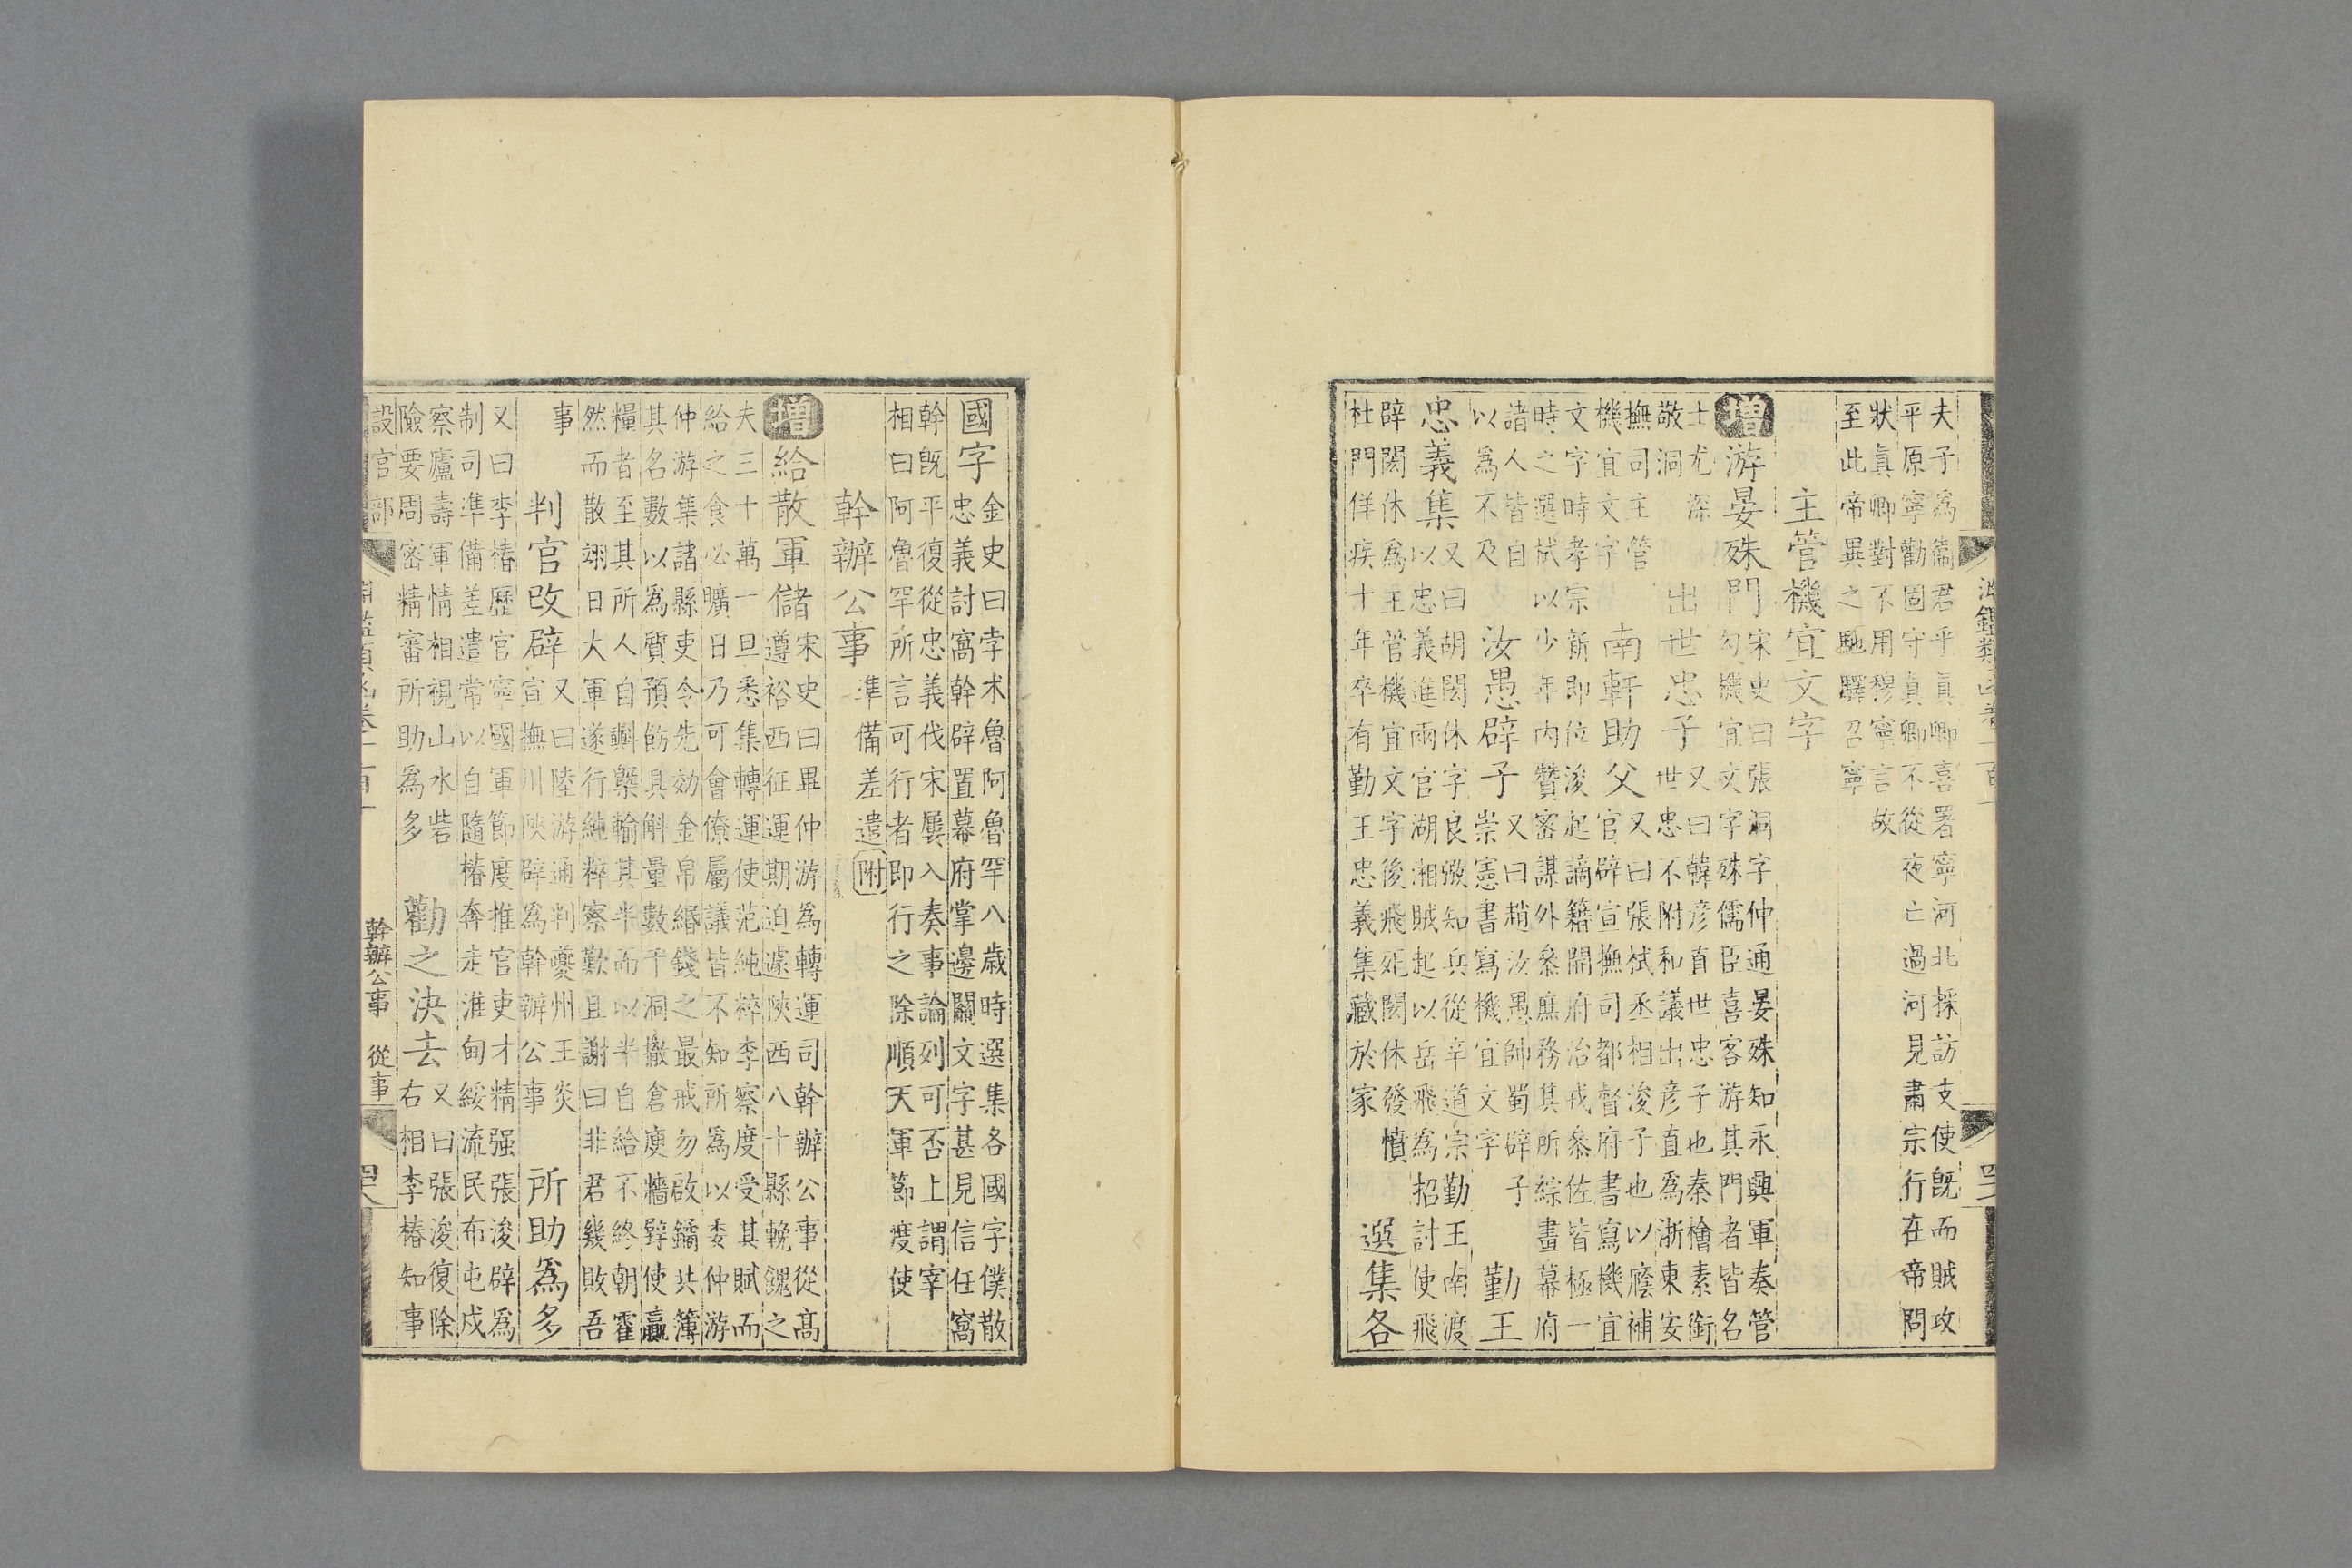 夫子為篇君乎真卿喜署寧河北採訪支使既而賊攻
平原寧勸固守真卿不從夜亡過河見肅宗行在帝問
狀真卿對不用穆寧言故
至此帝異之馳驛召寧
主管機宜文字
增游晏殊門
宋史曰張洞字仲通晏殊知永興軍奏管
勾機宜文字殊儒臣喜客游其門者皆名
士尤深
敬洞
出世忠子
又曰韓彥直世忠子也秦檜素銜
世忠不附和議出彥直為浙東安
撫司主管
機宜文字
南軒助父
又曰張栻丞相浚子也以廕補
官辟宣撫司都督府書寫機宜
文字時孝宗新即位浚起謫籍開府治戎參佐皆極一
時之選栻以少年內贊密謀外參庶務其所綜畫幕府
諸人皆自
以為不及
汝愚辟子
又曰趙汝愚帥蜀辟子
崇憲書寫機宜文字
勤王
忠義集
又曰胡閎休字良弢知兵從辛道宗勤王南渡
以忠義進兩官湖湘賊起以岳飛為招討使飛
辟閎休為主管機宜文字後飛死閎休發憤
杜門佯疾十年卒有勤王忠義集藏於家
選集各
國字
金史曰孛朮魯阿魯罕八歲時選集各國字僕散
忠義討窩幹辟置幕府掌邊關文字甚見信任窩
幹既平復從忠義伐宋屢入奏事論列可否上謂宰
相曰阿魯罕所言可行者即行之除順天軍節度使
幹辦公事
準備差遣附
增給散軍儲
宋史曰畢仲游為轉運司幹辦公事從高
遵裕西征運期迫遽陝西八十縣輓餽之
夫三十萬一旦悉集轉運使范純粹李察度受其賦而
給之食必曠日乃可會僚屬議皆不知所為以委仲游
仲游集諸縣吏令先効金帛緡錢之最戒勿啟鐍共簿
其名數以為質預飭具斛量數千洞撤倉庾牆壁使贏
糧者至其所人自輈槩輸其半而以半自給不終朝霍
然而散翊日大軍遂行純粹察歎且謝曰非君幾敗吾
事
判官改辟
又曰陸游通判夔州王炎
宣撫川陝辟為幹辦公事
所助為多
又曰李椿歷官寧國軍節度推官吏才精强張浚辟為
制司準備差遣常以自隨椿奔走淮甸綏流民布屯戍
察廬壽軍情相視山水砦
險要周密精審所助為多
勸之決去
又曰張浚復除
右相李椿知事
設官部
幹辦公事 從事